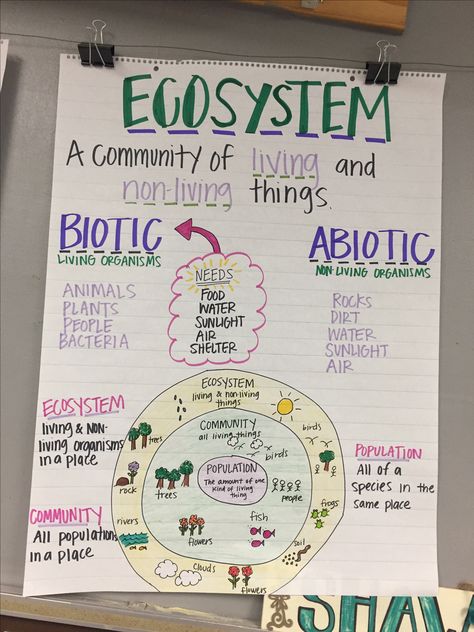 ECOSYSTEM
A COMMUNITY OF living AND
non-living THINGS.
BIOTIC
LIVING ORGANISMS
ANIMALS
PLANTS
PEOPLE
BACTERIA
NEEDS
FOOD
WATER
SUNLIGHT
AIR
SHELTER
ABIOTIC
NON-LIVING ORGANISMS
ROCKS
DIRT
WATER
SUNLIGHT
AIR
ECOSYSTEM
living & NON-
living organisms
in a place
COMMUNITY
All populations
in a place
ECOSYSTEM
living & non-living
things
COMMUNITY
all living things
POPULATION
The amount of one
kind of living
thing
trees
birds
birds
rock
trees
people
frogs
rivers
flowers
fish
soil
clouds
flowers
POPULATION
All of a
species in the
same place
SHA